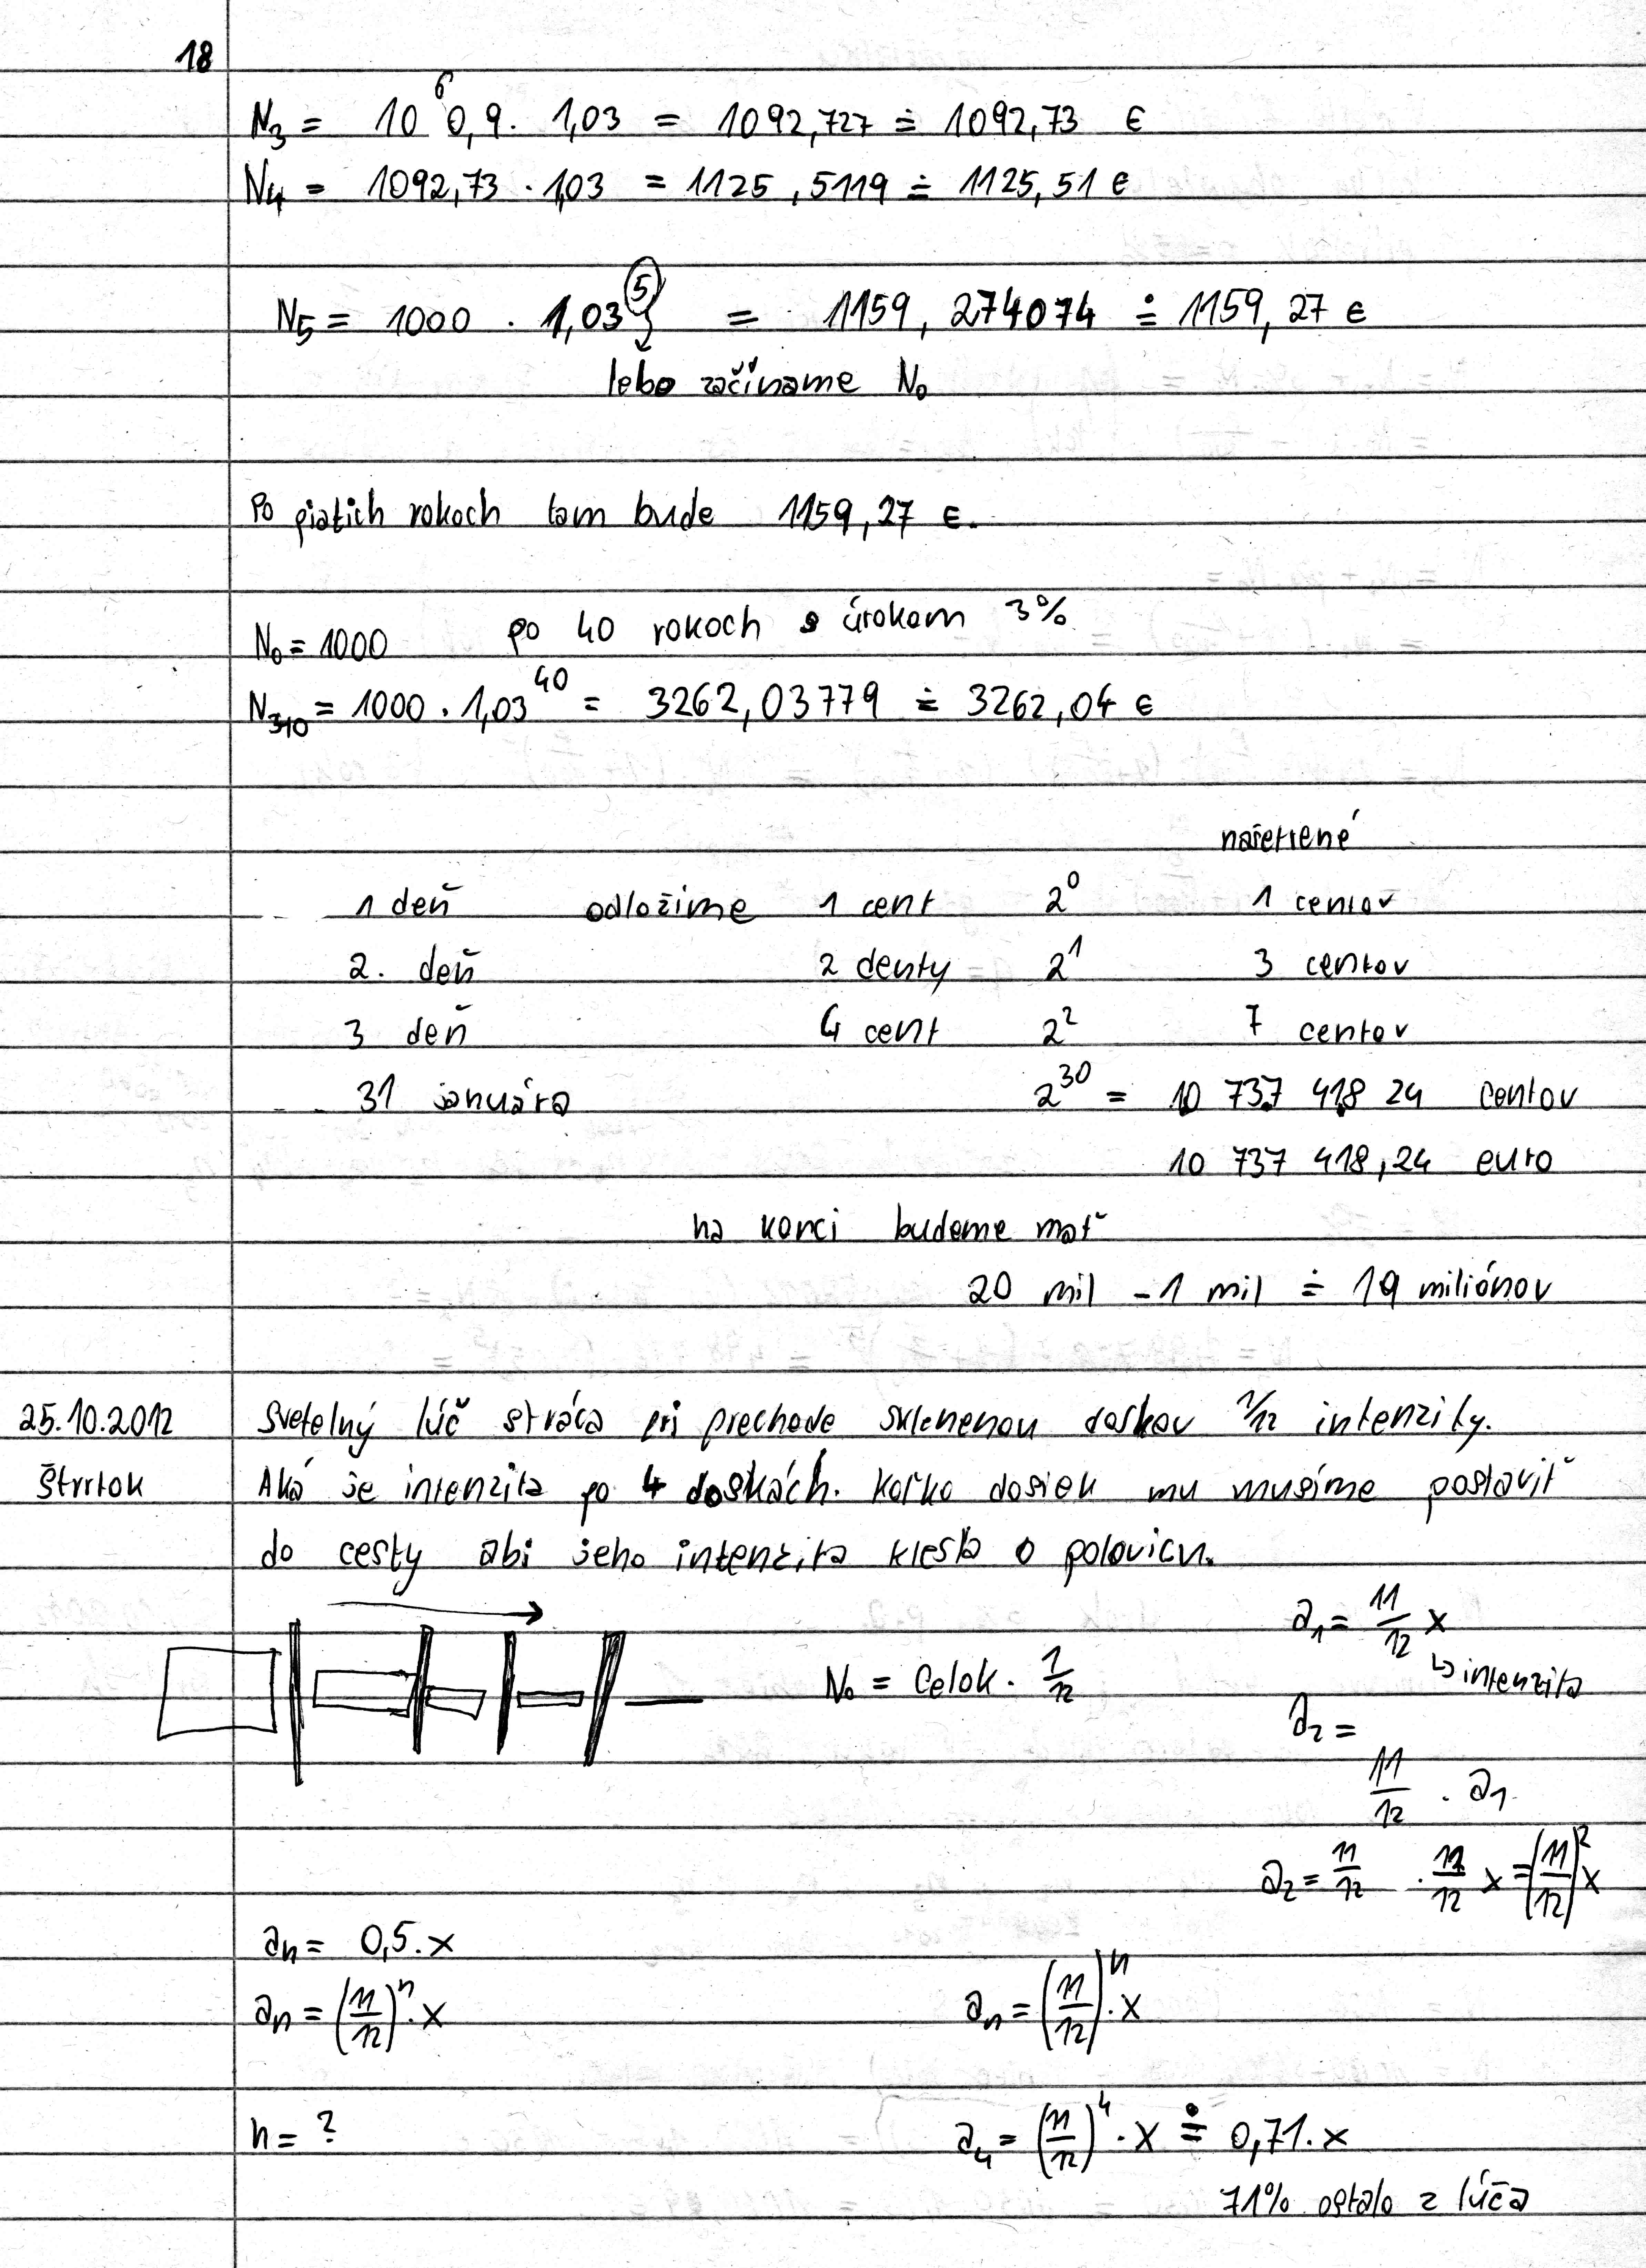 18
N₃ = 10⁶0,9 . 1,03 = 1092,727 ≐ 1092,73 €
N₄ = 1092,73 . 1,03 = 1125,5119 ≐ 1125,51 €
N₅ = 1000 . 1,03⁵ = 1159,274074 ≐ 1159,27 €
lebo začíname N₀
Po piatich rokoch tam bude 1159,27 €.
N₀ = 1000 po 40 rokoch s úrokom 3%
N₄₀ = 1000 . 1,03⁴⁰ = 3262,03779 ≐ 3262,04 €
našetrené
1 deň odložíme 1 cent 2⁰ 1 centov
2. deň 2 centy 2¹ 3 centov
3 deň 4 cent 2² 7 centov
31 januára 2³⁰ = 10 737 418 24 centov
10 737 418,24 euro
na konci budeme mať
20 mil - 1 mil ≐ 19 miliónov
25.10.2012 Svetelný lúč stráca pri prechode sklenenou doskou 1/12 intenzity.
Štvrtok Aká je intenzita po 4 doskách. Koľko dosiek mu musíme postaviť
do cesty abi jeho intenzita klesla o polovicu.
a₁ = 11/12 x
↳ intenzita
N₀ = Celok . 1/12
a₂ =
11/12 . a₁
a₂ = 11/12 . 11/12 x = (11/12)² x
aₙ = 0,5 . x
aₙ = (11/12)ⁿ . x aₙ = (11/12)ⁿ . x
n = ? a₄ = (11/12)⁴ . x ≐ 0,71 . x
71% ostalo z lúča